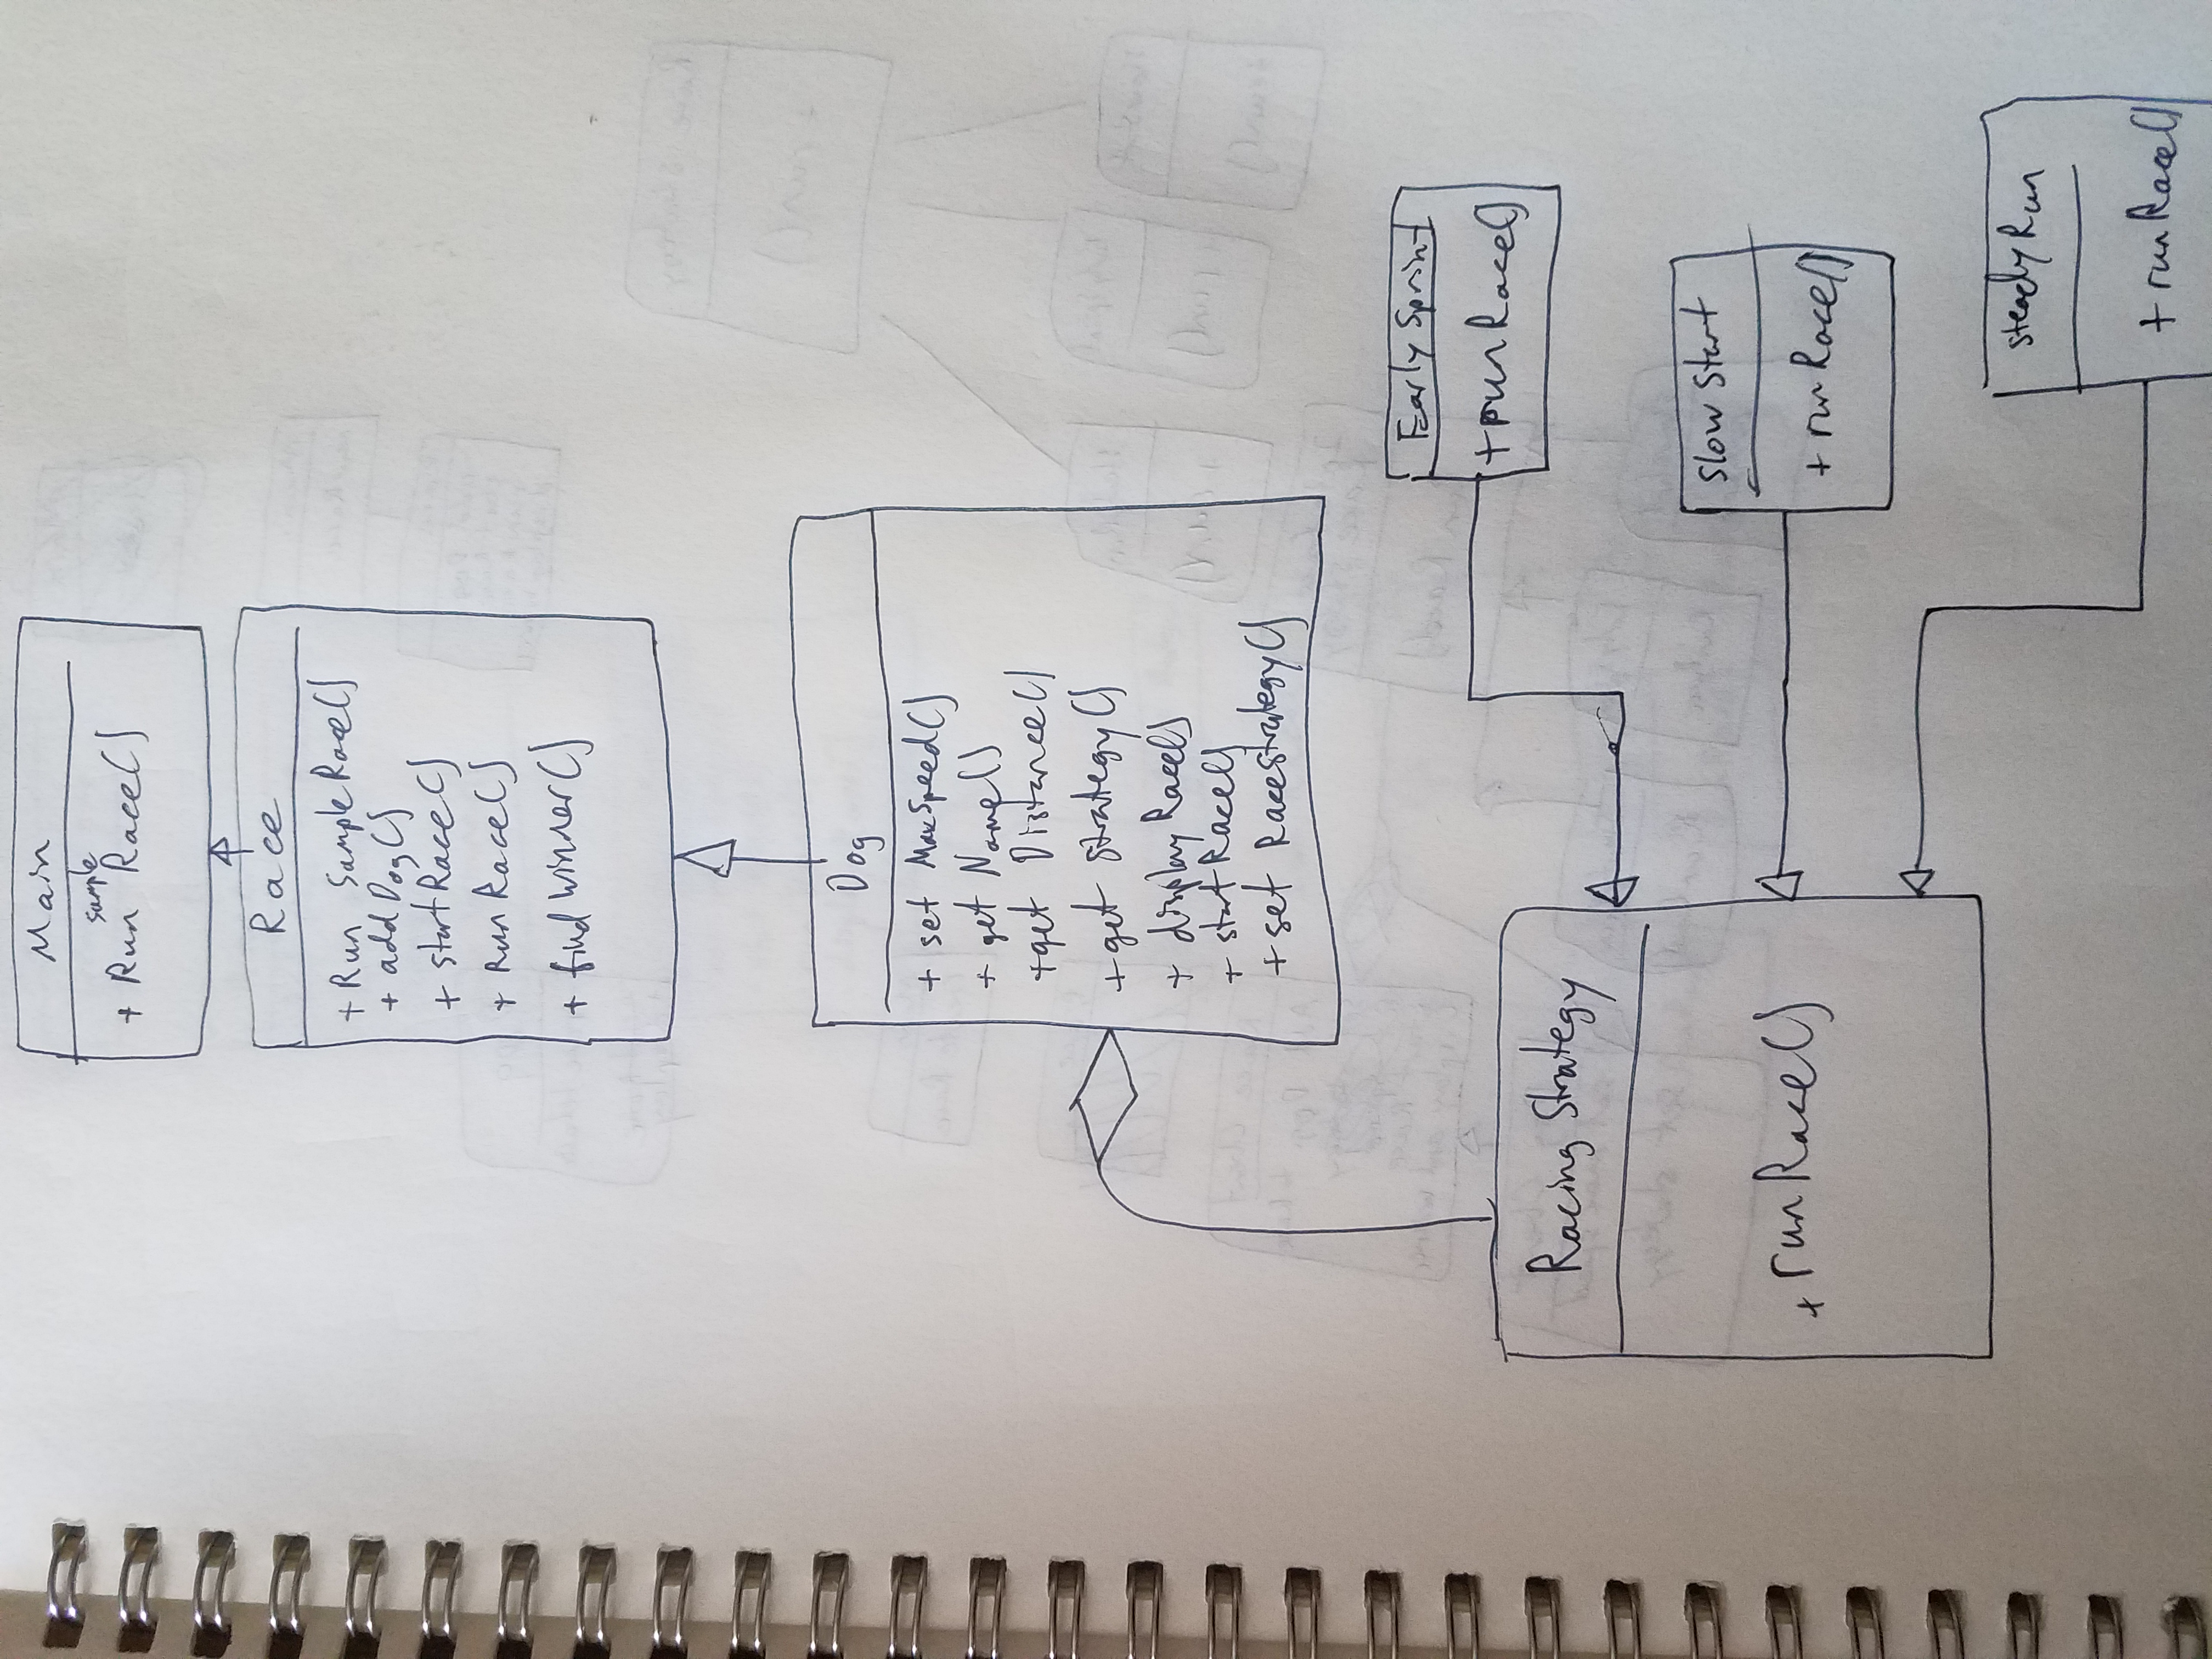 Main
sample
+ Run Race()
Race
+ Run SampleRace()
+ addDog()
+ startRace()
+ RunRace()
+ findWinner()
Dog
+ set MaxSpeed()
+ get Name()
+get Distance()
+get strategy()
+ displayRace()
+ startRace()
+set RaceStrategy()
Early Sprint
+runRace()
Racing Strategy
+ runRace()
slow start
+ runRace()
steadyRun
+ runRace()